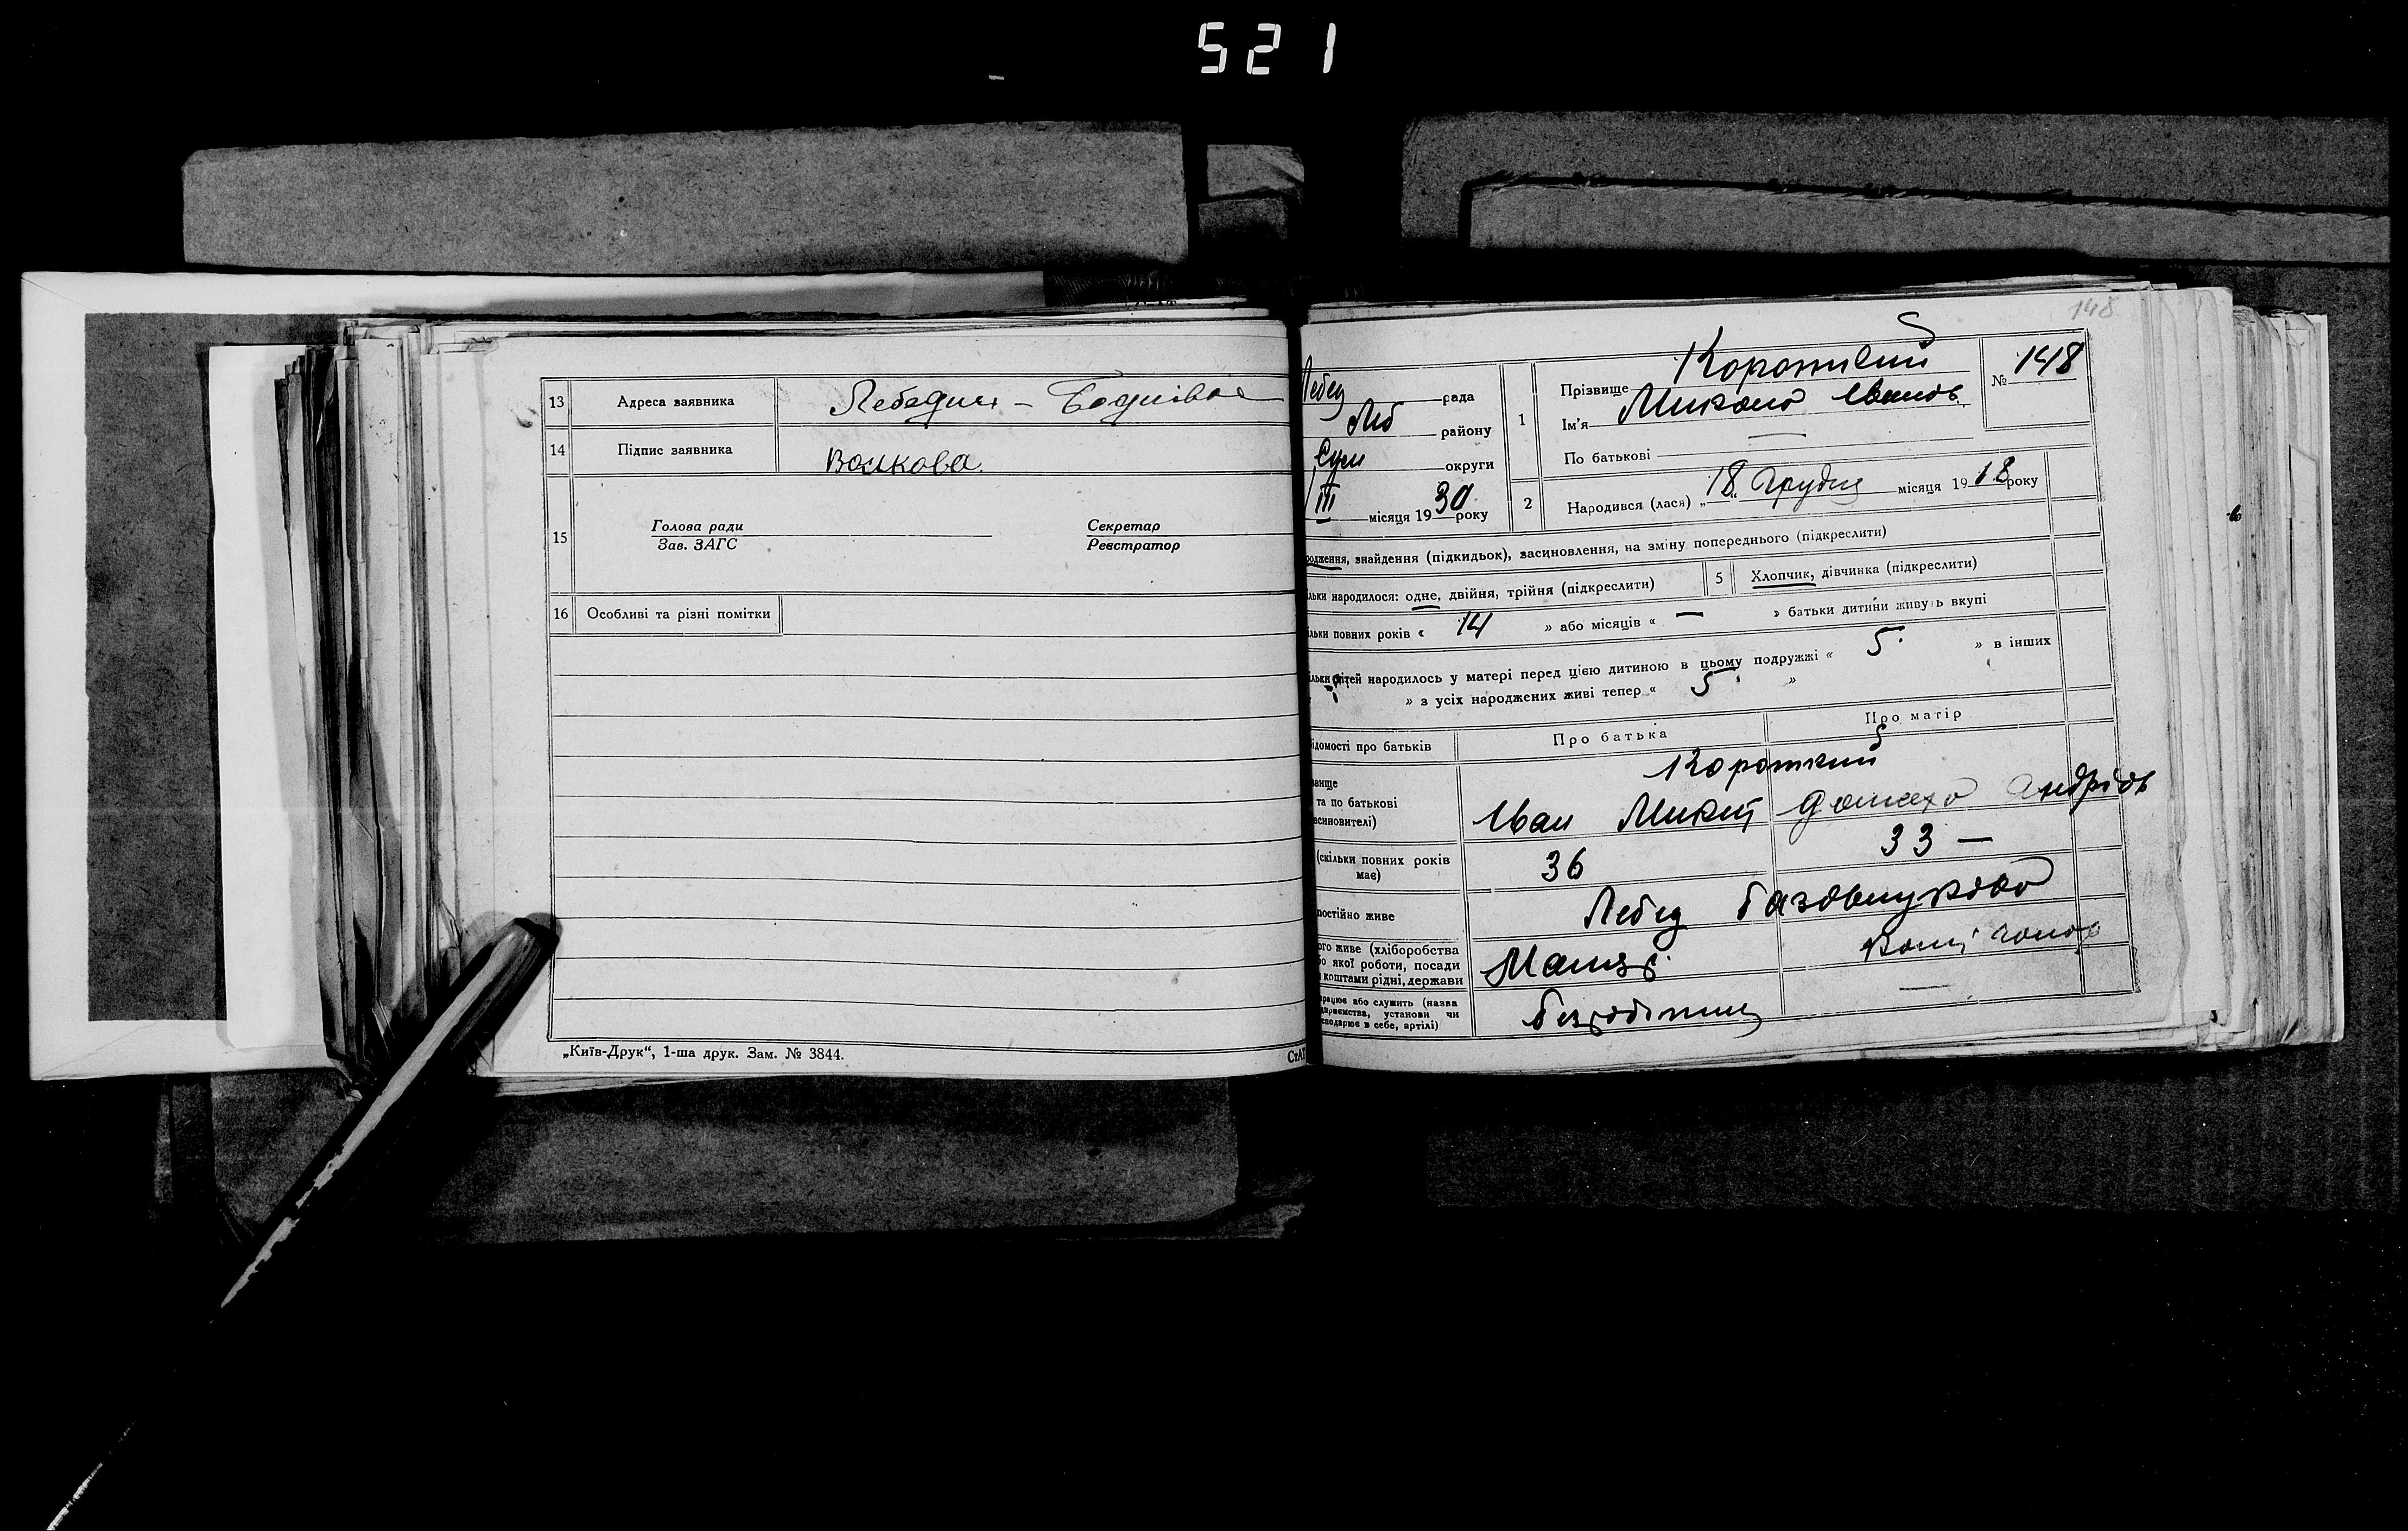 521
13 Адреса заявника Лебедин –
14 Підпис заявника Волкова.
15 Голова ради
Зав. ЗАГС
Секретар
Реєстратор
16 Особливі та різні помітки
„Київ-Друк“, 1-ша друк. Зам. № 3844.
148
Лебед рада
Леб району
Сум округи
III місяця 1930 року
1 Прізвище Короткий
Ім'я Микола Іванов.
По батькові —
№ 148
2 Народився (лася) „18“ Грудня місяця 1918 року
одження, знайдення (підкидьок), засиновлення, на зміну попереднього (підкреслити)
льки народилося: одне, двійня, трійня (підкреслити) 5 Хлопчик, дівчинка (підкреслити)
льки повних років « 14 » або місяців « — » батьки дитини живуть вкупі
льки дітей народилось у матері перед цією дитиною в цьому подружжі « 5 » в інших
» з усіх народжених живі тепер « 5 »
ідомості про батьків Про батька Про матір
звище
та по батькові
асиновителі)
Короткий
Іван Микит Андріїв
(скільки повних років
має)
36 33 —
постійно живе Лебед
ого живе (хліборобства
бо якої роботи, посади
коштами рідні, держави
рацює або служить (назва
дприємства, установи чи
сподарює в себе, артілі)
безробітний —